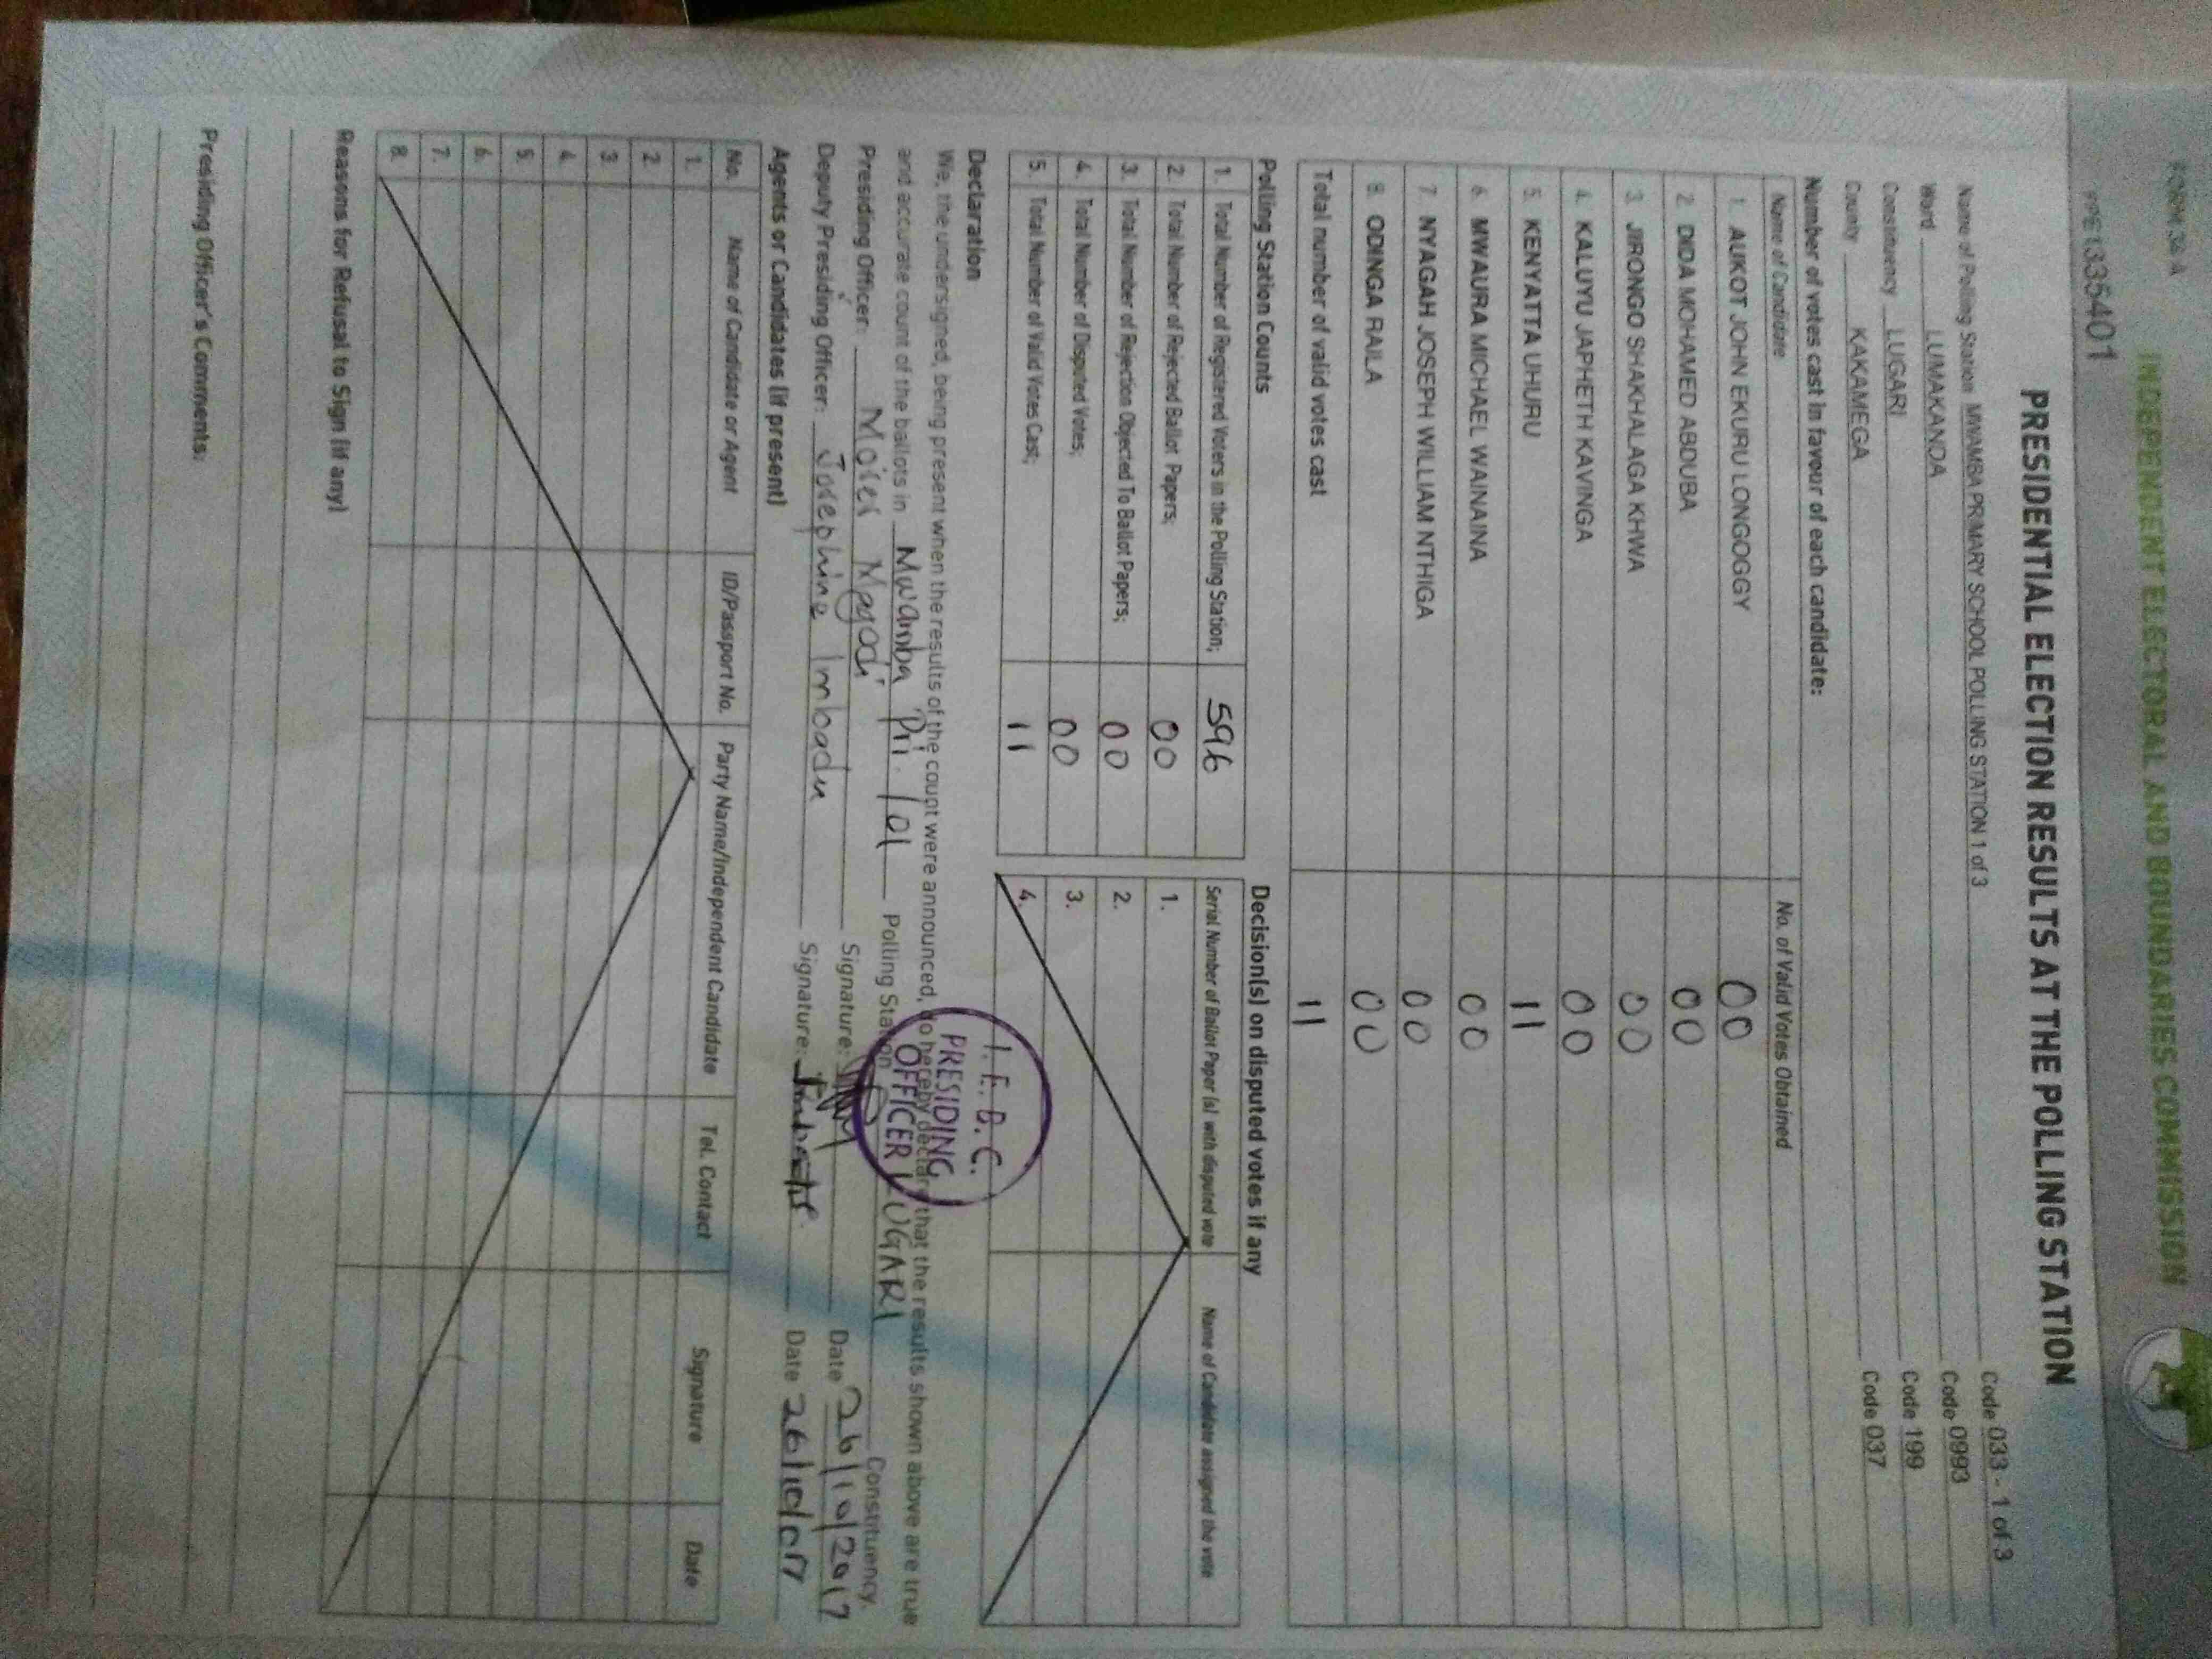 FORM 34 A
INDEPENDENT ELECTORAL AND BOUNDARIES COMMISSION
PRESIDENTIAL ELECTION RESULTS AT THE POLLING STATION
Name of Polling Station MWAMBA PRIMARY SCHOOL POLLING STATION 1 of 3 Code 033 - 1 of 3
Ward LUMAKANDA Code 0993
Constituency LUGARI Code 199
County KAKAMEGA Code 037
Number of votes cast in favour of each candidate:
Name of Candidate No. of Valid Votes Obtained
1. AUKOT JOHN EKURU LONGOGGY 00
2. DIDA MOHAMED ABDUBA 00
3. JIRONGO SHAKHALAGA KHWA 00
4. KALUYU JAPHETH KAVINGA 00
5. KENYATTA UHURU 11
6. MWAURA MICHAEL WAINAINA 00
7. NYAGAH JOSEPH WILLIAM NTHIGA 00
8. ODINGA RAILA 00
Total number of valid votes cast 11
Polling Station Counts
1. Total Number of Registered Voters in the Polling Station; 596
2. Total Number of Rejected Ballot Papers; 00
3. Total Number of Rejection Objected To Ballot Papers; 00
4. Total Number of Disputed Votes; 00
5. Total Number of Valid Votes Cast; 11
Decision(s) on disputed votes if any
Serial Number of Ballot Paper (s) with disputed vote Name of Candidate assigned the vote
1.
2.
3.
4.
Declaration
We, the undersigned, being present when the results of the count were announced, do hereby declare that the results shown above are true
and accurate count of the ballots in Mwamba Pri. /01 Polling Station LUGARI Constituency.
Presiding Officer: Moses Magodi Signature: Date 26/10/2017
Deputy Presiding Officer: Josephine Imbadu Signature: Date 26/10/017
I.E.B.C.
PRESIDING
OFFICER
Agents or Candidates (if present)
No. Name of Candidate or Agent ID/Passport No. Party Name/Independent Candidate Tel. Contact Signature Date
1.
2.
3.
4.
5.
6.
7.
8.
Reasons for Refusal to Sign (if any)
Presiding Officer's Comments: